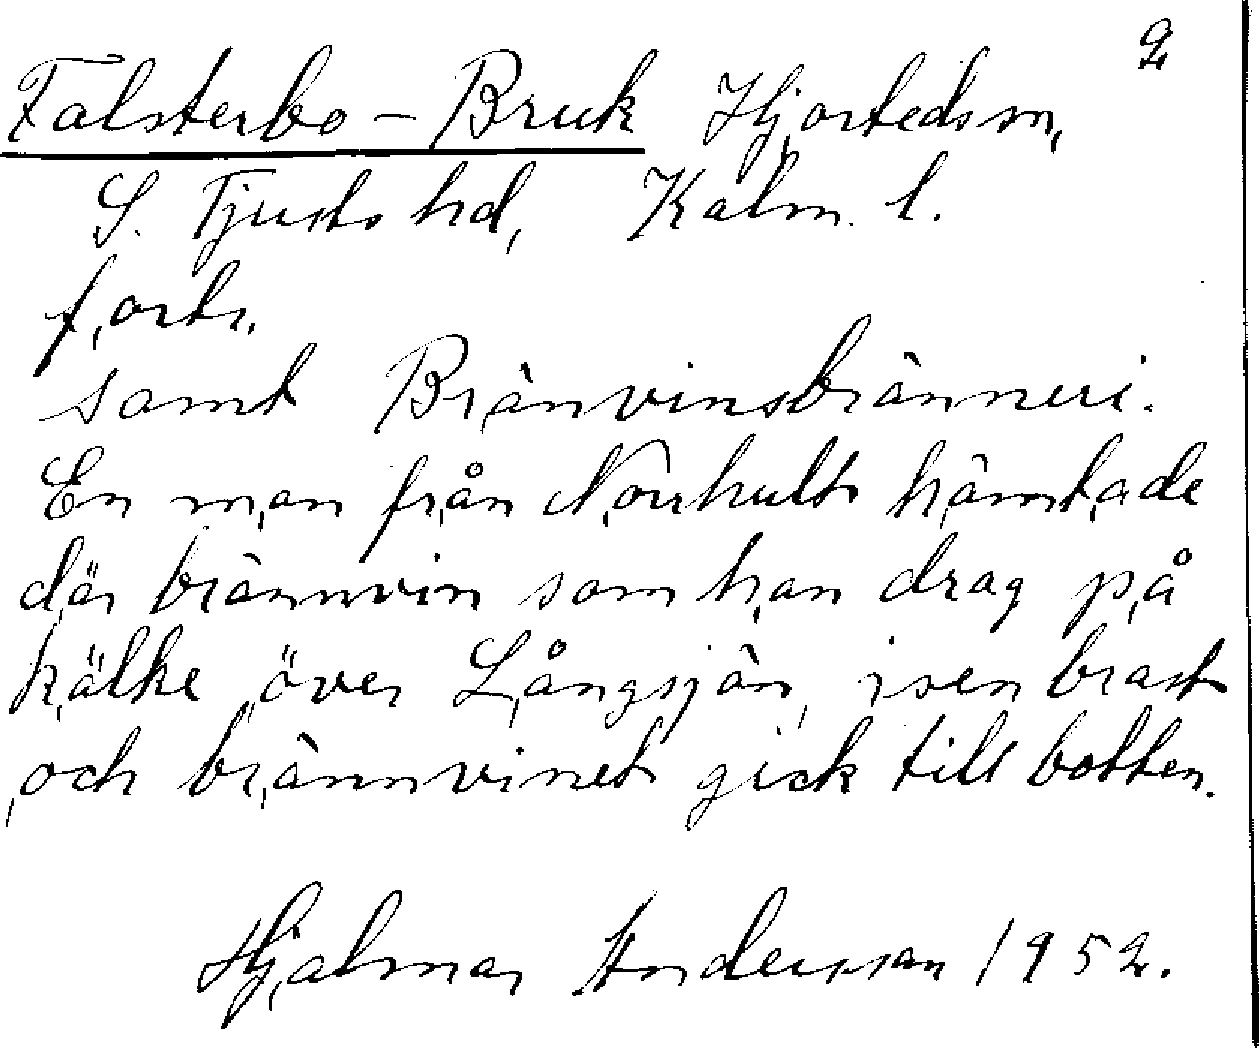 2
Falsterbo - Bruk Hjorted sn,
S. Tjusts hd, Kalm. l.
forts.
samt Bränvinsbränneri.
En man från Norrhult hämtade
där brännvin som han drag på
kälke över Långsjön, isen brast
och brännvinet gick till botten.
Hjalmar Andersson 1952.